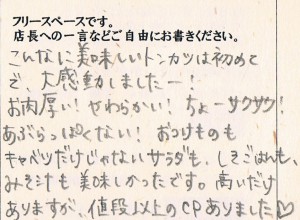 フリースペースです。
店長への一言などご自由にお書きください。
こんなに美味しいトンカツは初めて
で、大感動しましたー!
お肉厚い!やわらかい!ちょーサクサク!
あぶらっぽくない!おつけものも
キャベツだけじゃないサラダも、しそごはんも、
みそ汁も美味しかったです。高いだけ
ありますが、値段以上のCPありました♡